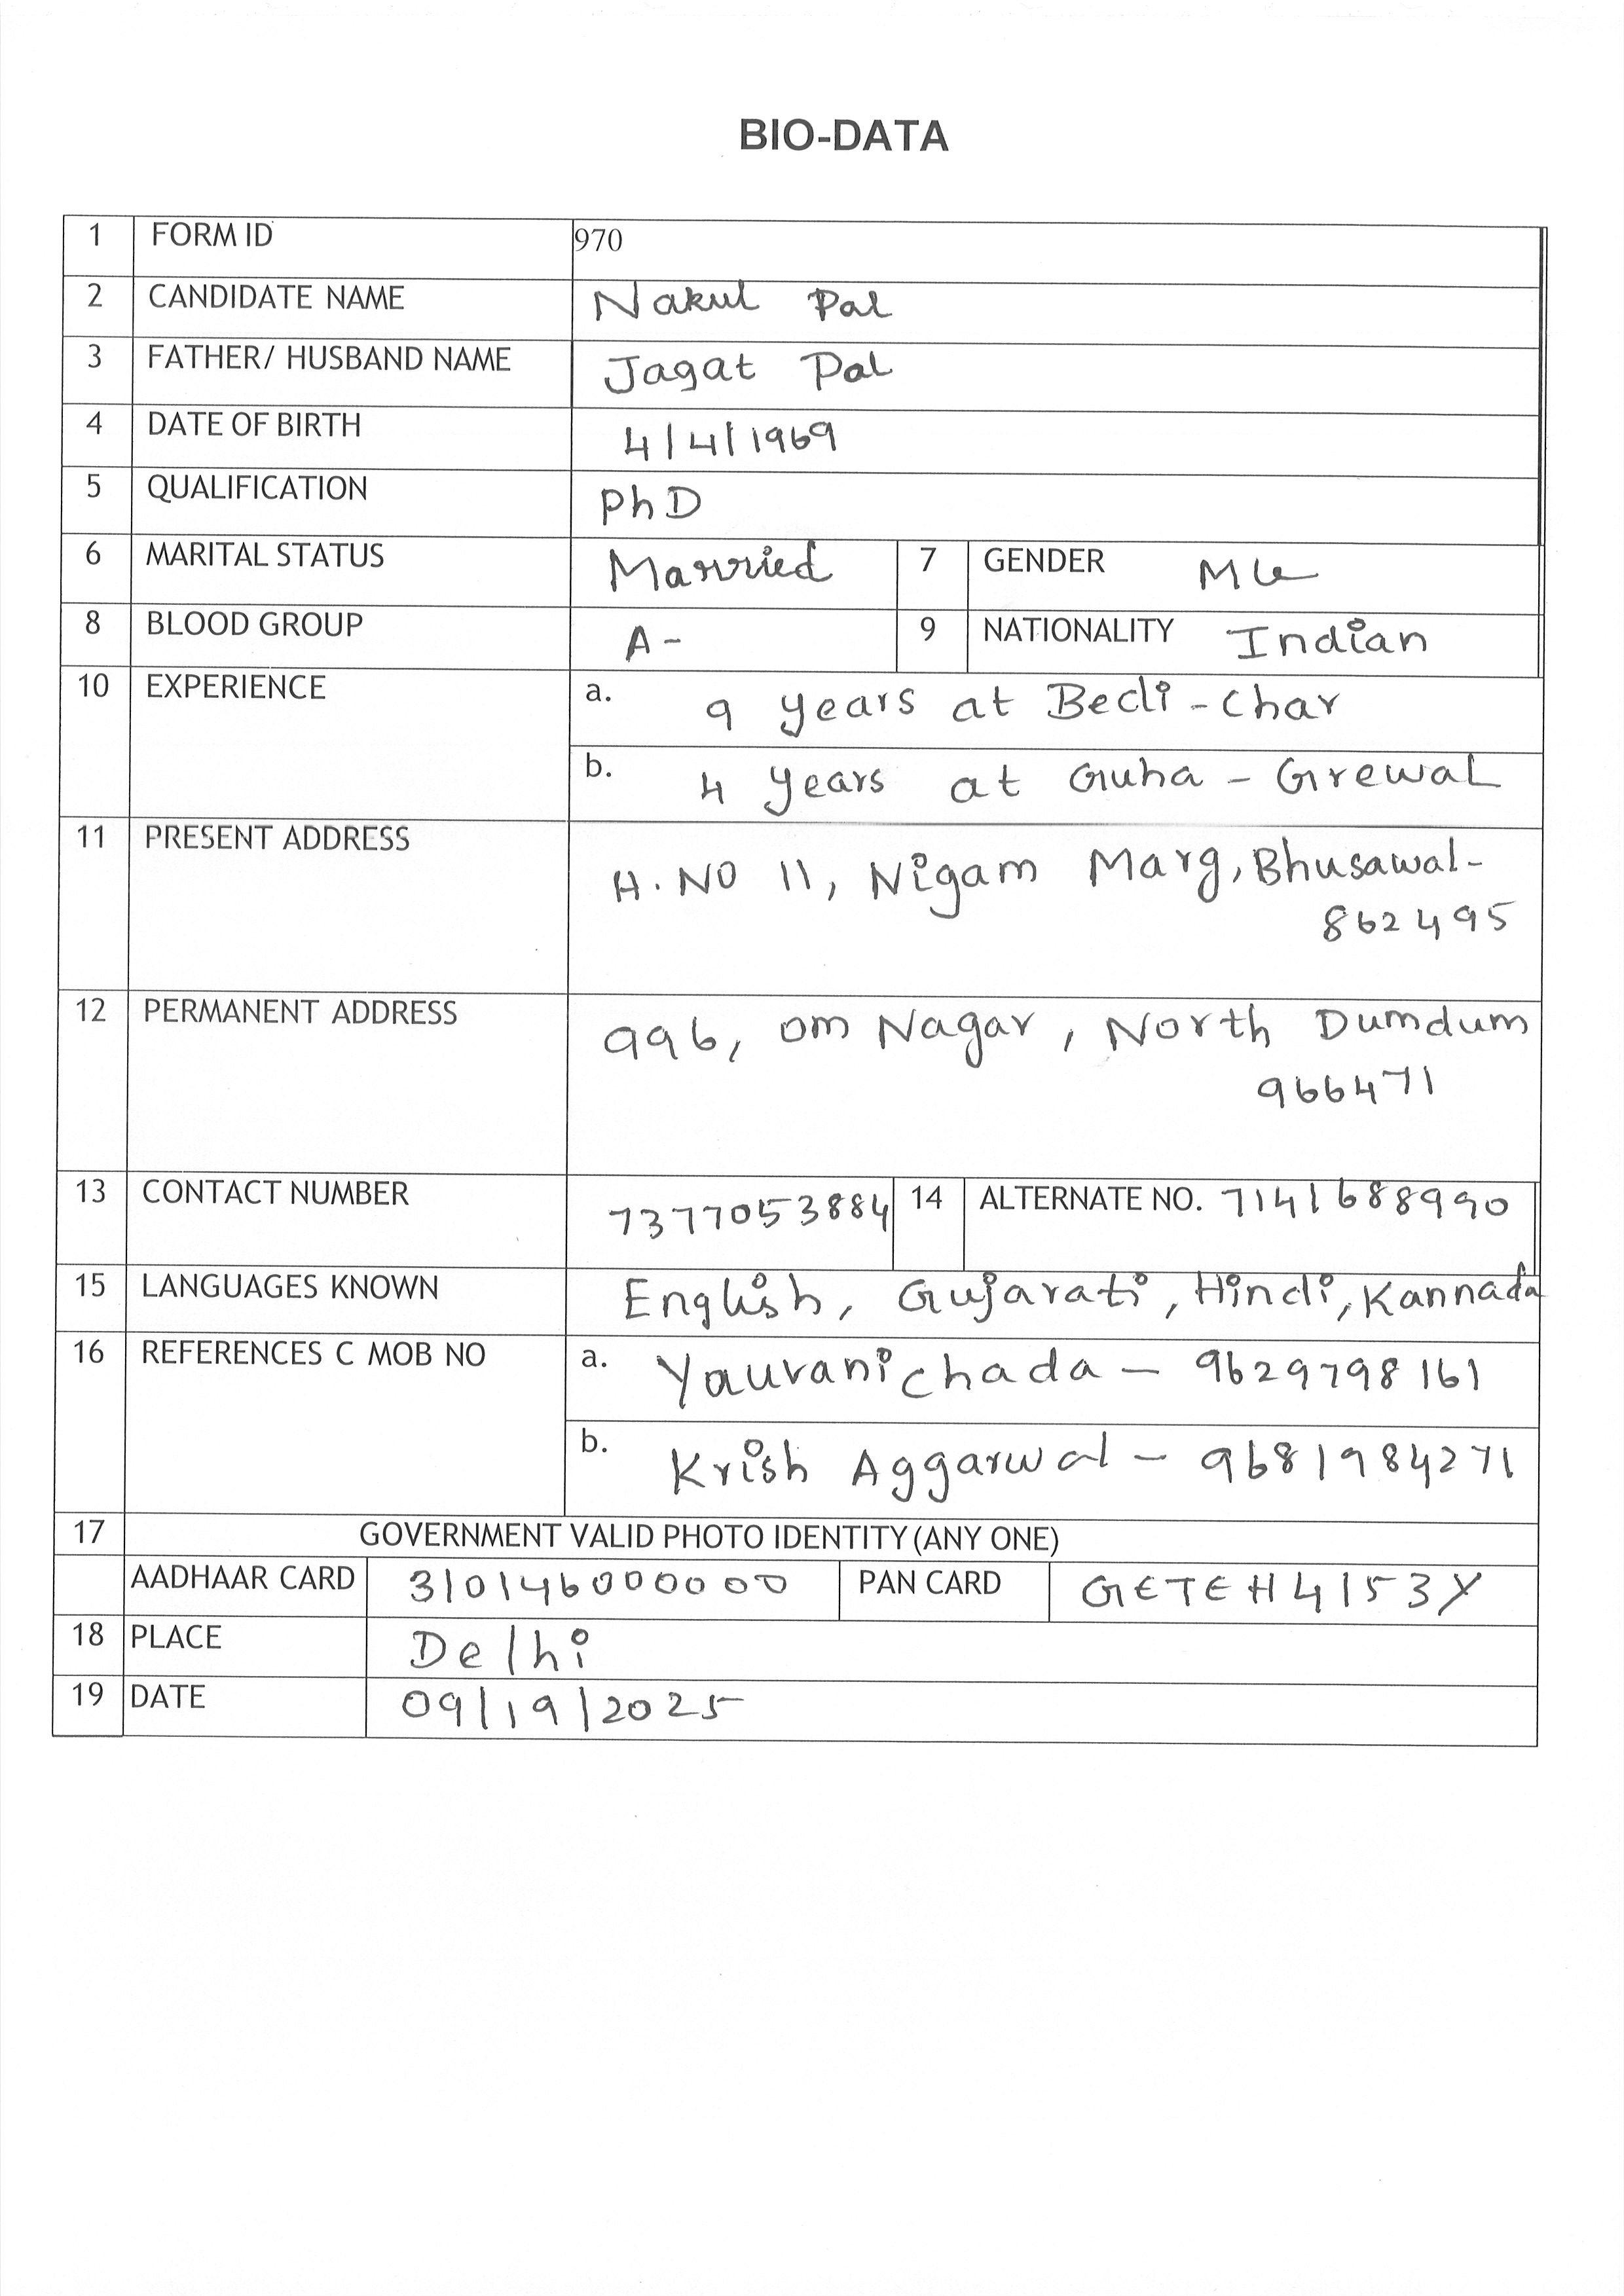 BIO-DATA
1 FORM ID 970
2 CANDIDATE NAME Nakul Pal
3 FATHER/ HUSBAND NAME Jagat Pal
4 DATE OF BIRTH 4/4/1969
5 QUALIFICATION PhD
6 MARITAL STATUS Married 7 GENDER
8 BLOOD GROUP A- 9 NATIONALITY Indian
10 EXPERIENCE a. 9 years at Bedi-Char
b. 4 years at Guha - Grewal
11 PRESENT ADDRESS H.NO 11, Nigam Marg, Bhusawal-
862495
12 PERMANENT ADDRESS 996, Om Nagar, North Dumdum
966471
13 CONTACT NUMBER 7377053884 14 ALTERNATE NO. 7141688990
15 LANGUAGES KNOWN English, Gujarati, Hindi, Kannada
16 REFERENCES C MOB NO a. Yauvani Chada - 9629798161
b. Krish Aggarwal - 9681984271
17 GOVERNMENT VALID PHOTO IDENTITY (ANY ONE)
AADHAAR CARD 310146000000 PAN CARD GETEH4153Y
18 PLACE Delhi
19 DATE 09/19/2025